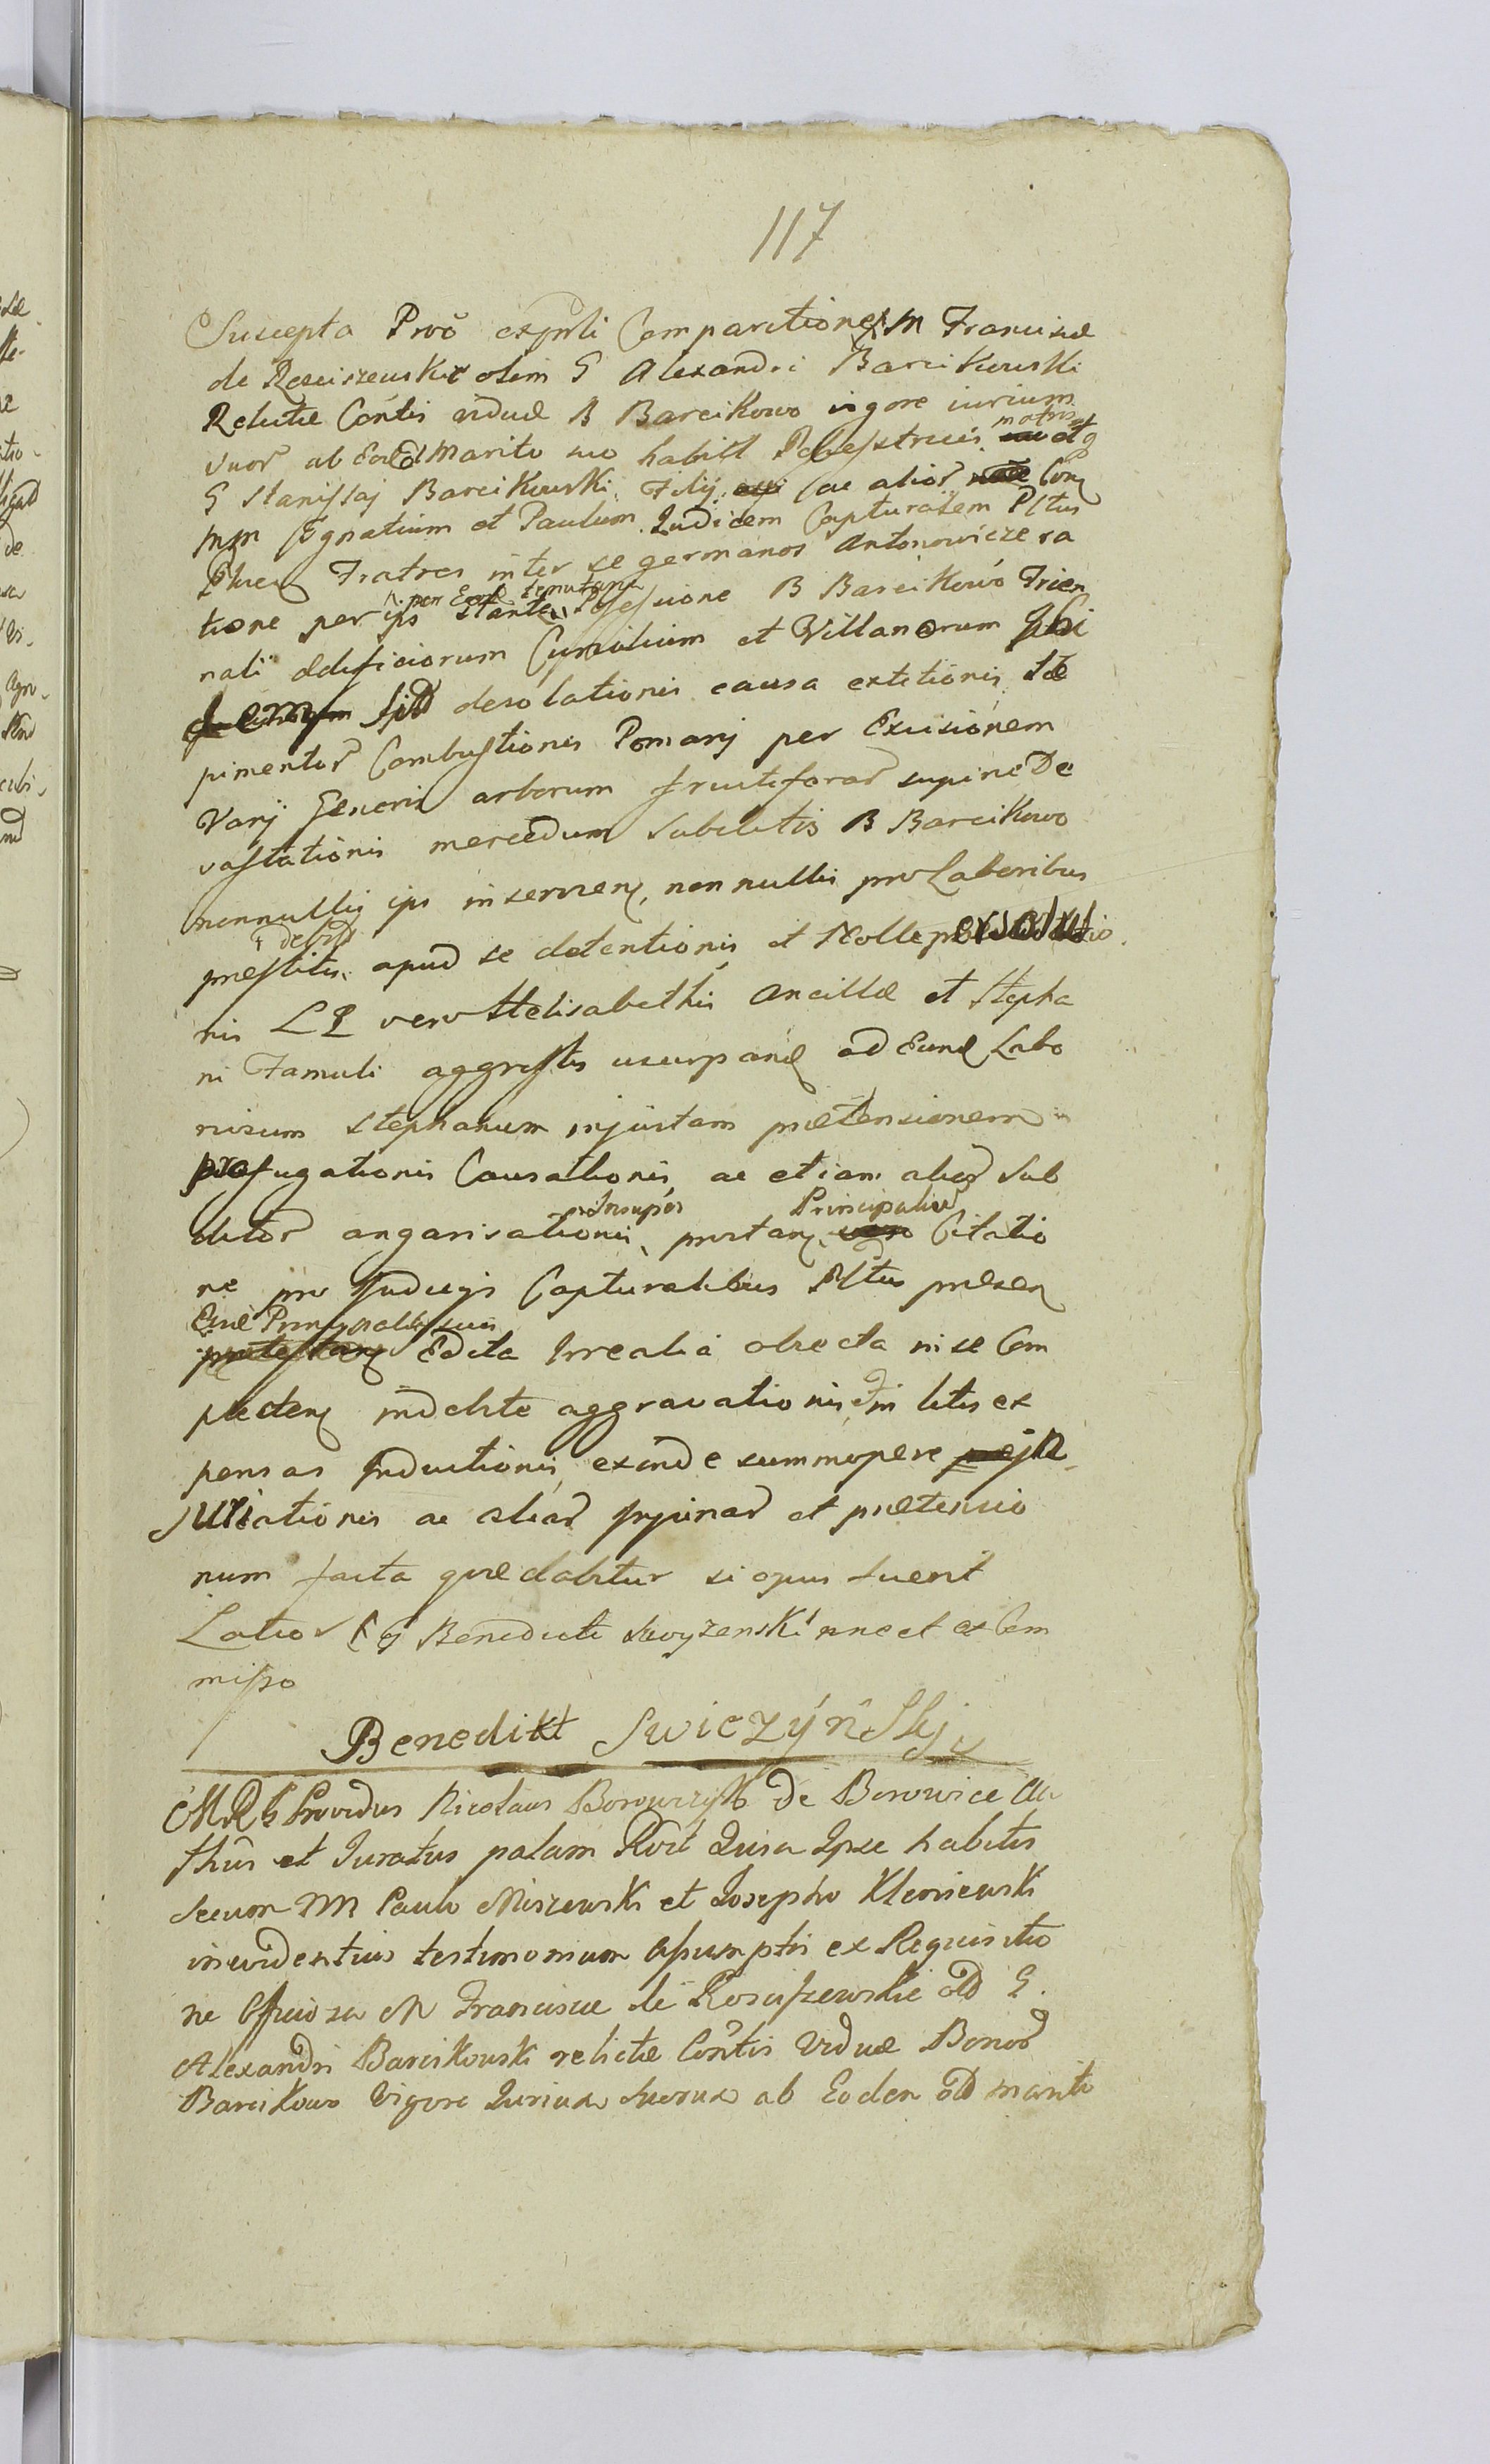 117
Suscepta Prvo expsli Comparitione M Franciscæ
de Rosciszewskie olim G Alexandri Barcikowski
Relictæ Contis viduæ B Barcikowo vigore iurium
suor ab Eod Marito suo habit Possestricis matris et
G Stanislaj Barcikowski Filij ac alior Con
MM Ignatium et Paulum Judicem Capturalem Pltus
Phnen Fratres inter se germanos Antonowicze ra
per Eosd temutana
tione per ips stante Possessione B Barcikowo Trien
nali ædificiorum Curialium et Villanorum Ibi
desolationis causa extitionis Sæ
pimentor Combustionis Pomarij per Excisionem
Varij Generis arborum fructiferar supine De
vastationis mercedum Subditis B Barcikowo
nonnullis ips inservien, non nullis pro Laboribus
debit
præstitis apud se detentionis et Nolle
nis LP vero Helisabethis Ancillæ et Stepha
ni Famuli aggrestis usurpan ad Eund Labo
riosum Stephanum injustam prætensionem
profugationis Causationis, ac etiam alior Sub
Insuper Principaliu
ditor angarisationis, protan Citatio
ne pro Judicijs Capturalibus Pltus præsen
Principalibus suis
Edita Irrealia obiecta in se Com
plecten indebite aggravationis in litis ex
pensas Inductionis, exinde summopere
juriationis ac aliar Injuriar et prætensio
num facta quæ dabitur si opus fuerit
Latio G Benedicti Swyzenski nnc et ex Com
misso
Benedikt Swiczýnskj
MRh Providus Nicolaus Borowczyk de Borowice Au
thus et Juratus palam Rvit Quia Ipse habitis
secum MM Paulo Miszewski et Josepho Kleniewski
in evidentius testimonium assumptis ex Requisitio
ne Officiosa M Franciscæ de Rosciszewskie od G.
Alexandri Barcikowski relictæ Contis Viduæ Bonor
Barcikowo Vigore Jurium suorum ab Eodem od marito